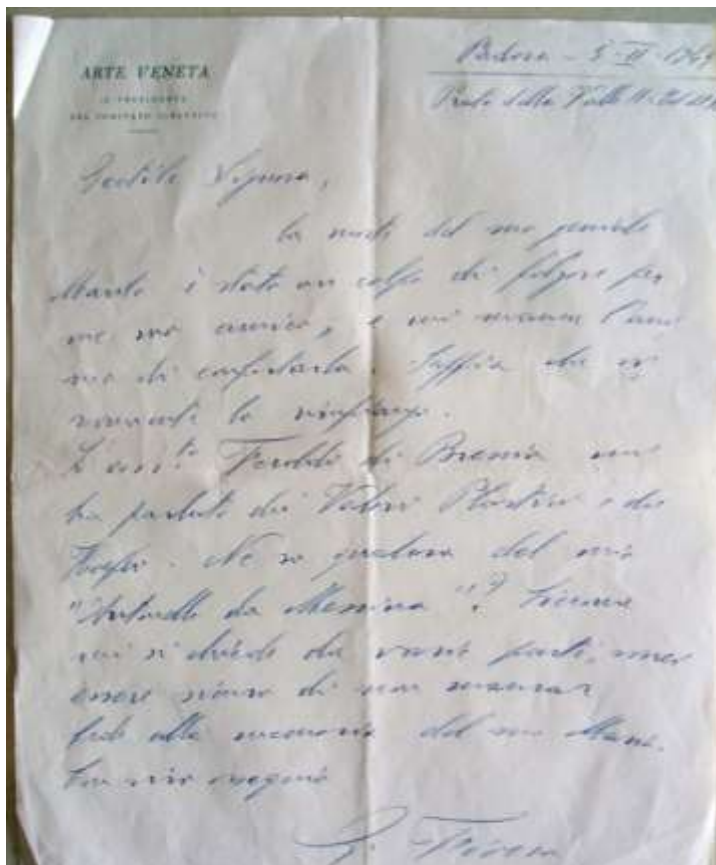 ARTE VENETA
IL PRESIDENTE
DEL COMITATO DIRETTIVO
Padova - 5-II-1969
Prato della Valle
Gentile Signora,
la morte del suo
Marito è stato un colpo di folgore per
me, suo amico, e mi
di confortarla. Sappia che
la ringrazio.
Feroldi di Brescia mi
ha parlato di Valori Plastici e di
Broglio. Ne sa qualcosa del mio
"Antonello da Messina"? Siccome
mi si chiede da varie parti, vorrei
essere sicuro di non mancar
fede alla memoria del suo
Con vivo ossequio
G. Fiocco